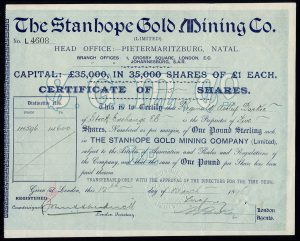 The Stanhope Gold Mining Co.
(LIMITED)
No. L 4608
HEAD OFFICE:—PIETERMARITZBURG, NATAL
BRANCH OFFICES: 1, CROSBY SQUARE, LONDON, E.C.
JOHANNESBURG, S.A.R.
CAPITAL: £35,000, IN 35,000 SHARES OF £1 EACH.
CERTIFICATE OF SHARES.
This is to Certify that
of Stock Exchange EC is the Proprietor of Five
Shares, Numbered as per margin, of One Pound Sterling each
in THE STANHOPE GOLD MINING COMPANY (Limited),
subject to the Articles of Association and Rules and Regulations of the
Company, and that the sum of One Pound per Share has been
paid thereon.
TRANSFERABLE ONLY WITH THE APPROVAL OF THE DIRECTORS FOR THE TIME BEING.
Given at London, this day of March
REGISTERED
Countersigned
London Secretary
London
Agents.